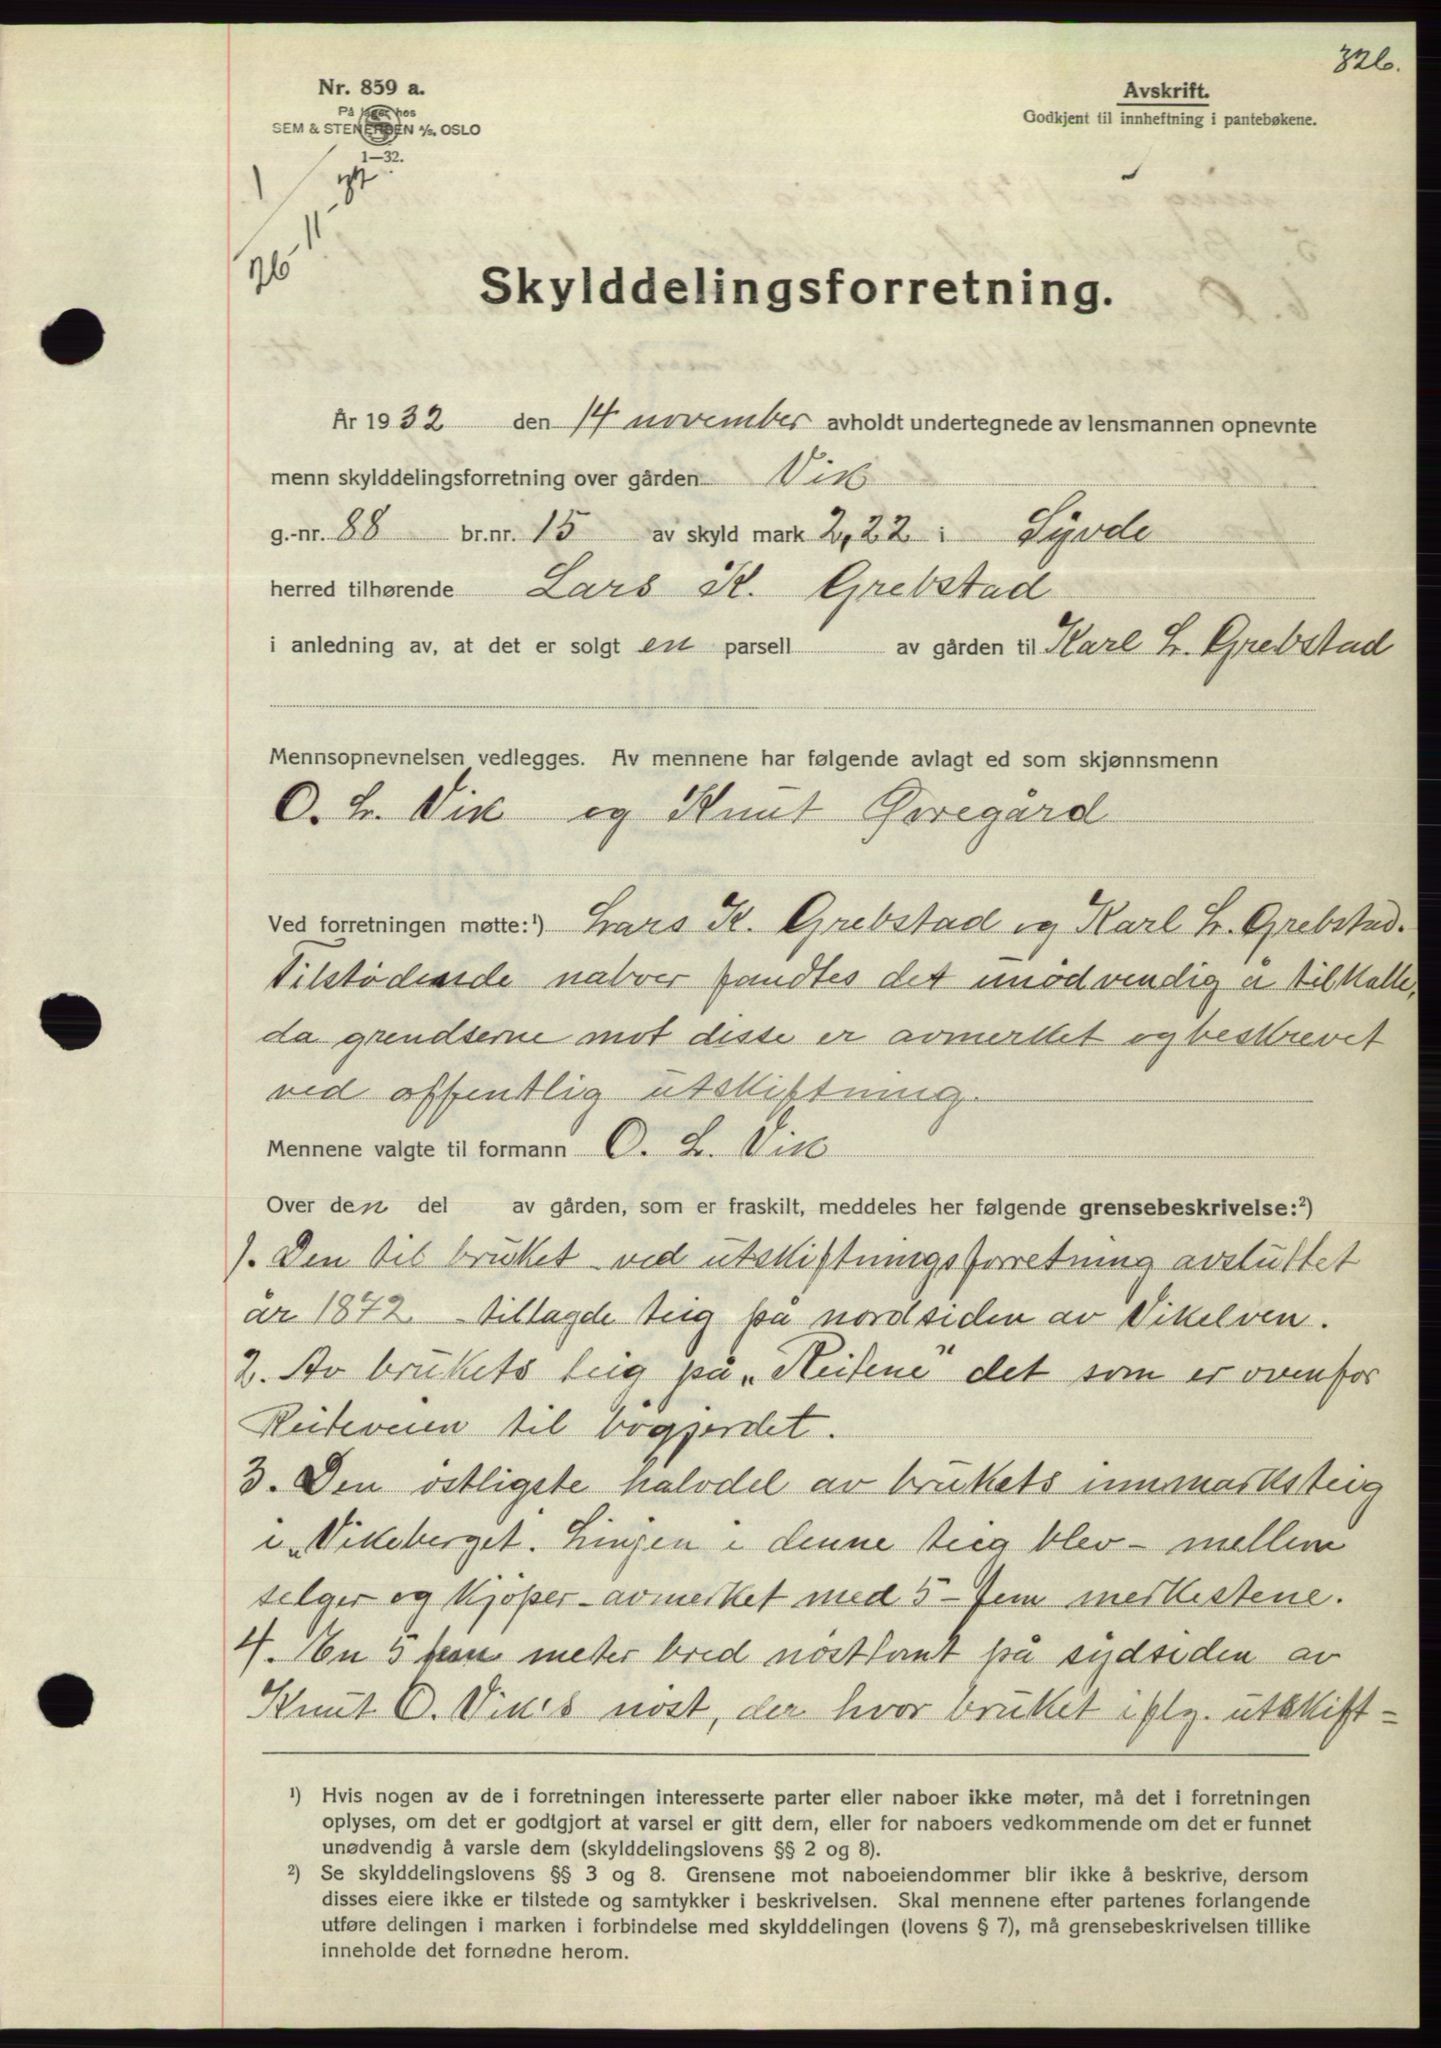 326.
Nr. 859 a.
På lager hos
SEM & STENERSEN A/S, OSLO
1—32.
Avskrift.
Godkjent til innheftning i pantebøkene.
26 11
Skylddelingsforretning.
År 1932 den 14 november avholdt undertegnede av lensmannen opnevnte
menn skylddelingsforretning over gården Vik
g.-nr. 88 br.nr. 15 av skyld mark 2,22 i Syvde
herred tilhørende Lars K. Grebstad
i anledning av, at det er solgt en parsell av gården til Karl L. Grebstad
Mennsopnevnelsen vedlegges. Av mennene har følgende avlagt ed som skjønnsmenn
O. L. Vik og Knut Øvregård
Ved forretningen møtte:¹) Lars K. Grebstad og Karl L. Grebstad.
Tilstødende naboer fandtes det unødvendig å tilkalle,
da grendserne mot disse er avmerket og beskrevet
ved offentlig utskiftning.
Mennene valgte til formann O. L. Vik
Over den del av gården, som er fraskilt, meddeles her følgende grensebeskrivelse:²)
1. Den til bruket ved utskiftningsforretning avsluttet
år 1872 tillagde teig på nordsiden av Vikelven.
2. Av brukets teig på „Reitene" det som er ovenfor
Reiteveien til bøgjerdet.
3. Den østligste halvdel av brukets innmarksteig
i „Vikeberget. Linjen i denne teig blev - mellem
selger og kjøper - avmerket med 5 - fem merkestene.
4. En 5 fem meter bred nøsttomt på sydsiden av
Knut O. Vik's nøst, der hvor bruket iflg. utskift=
¹) Hvis nogen av de i forretningen interesserte parter eller naboer ikke møter, må det i forretningen
oplyses, om det er godtgjort at varsel er gitt dem, eller for naboers vedkommende om det er funnet
unødvendig å varsle dem (skylddelingslovens §§ 2 og 8).
²) Se skylddelingslovens §§ 3 og 8. Grensene mot naboeiendommer blir ikke å beskrive, dersom
disses eiere ikke er tilstede og samtykker i beskrivelsen. Skal mennene efter partenes forlangende
utføre delingen i marken i forbindelse med skylddelingen (lovens § 7), må grensebeskrivelsen tillike
inneholde det fornødne herom.